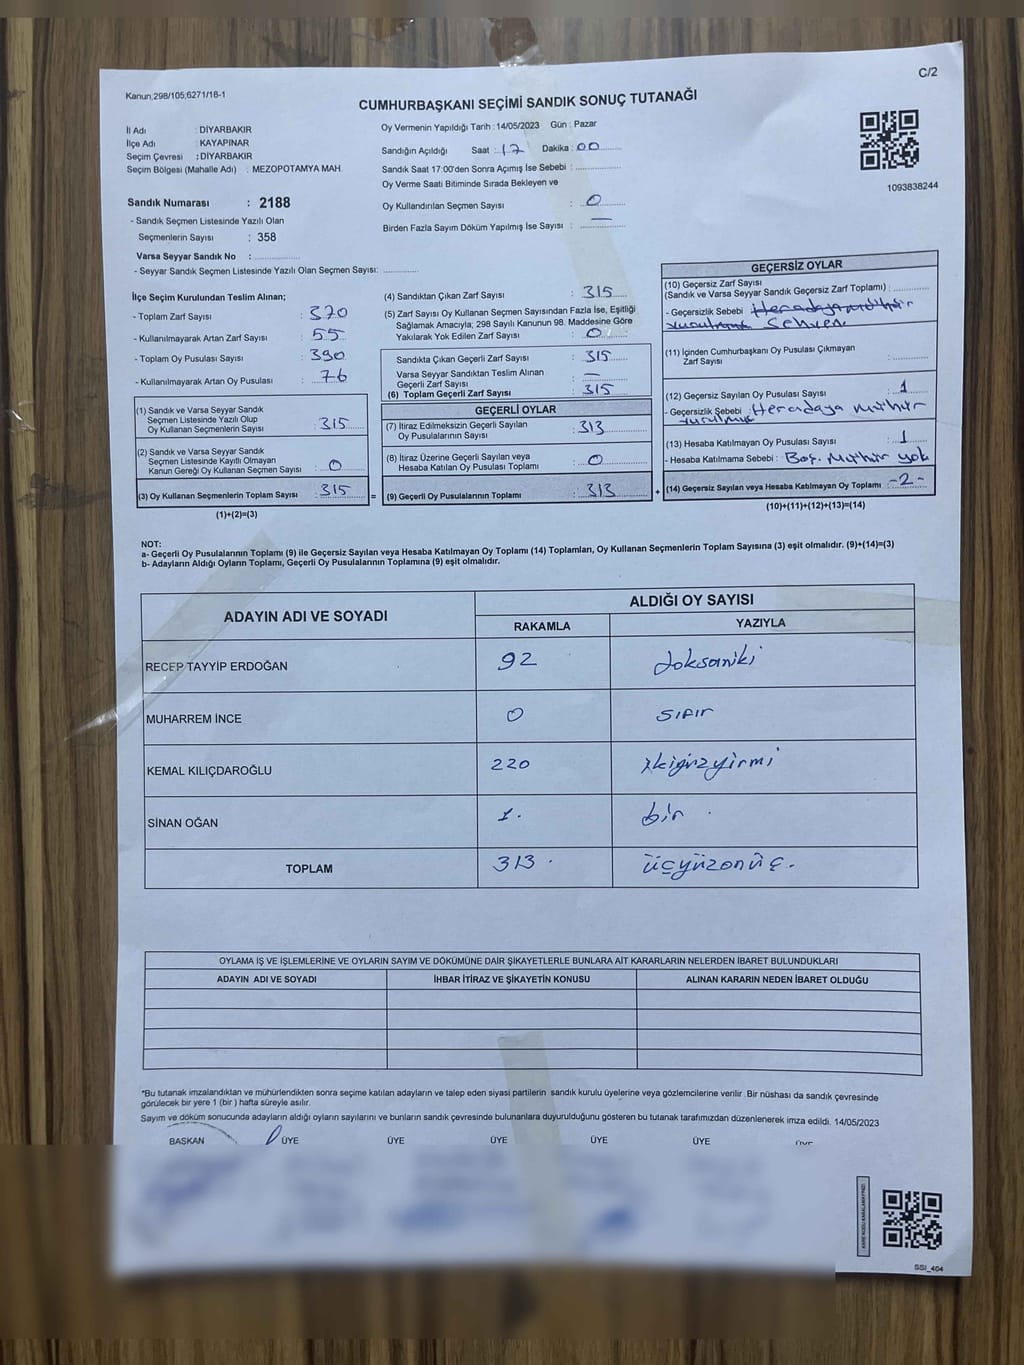 C/2
Kanun;298/105;6271/18-1
CUMHURBAŞKANI SEÇİMİ SANDIK SONUÇ TUTANAĞI
İl Adı : DİYARBAKIR
İlçe Adı : KAYAPINAR
Seçim Çevresi : DİYARBAKIR
Seçim Bölgesi (Mahalle Adı) : MEZOPOTAMYA MAH.
Sandık Numarası : 2188
- Sandık Seçmen Listesinde Yazılı Olan
Seçmenlerin Sayısı : 358
Varsa Seyyar Sandık No : ..............
- Seyyar Sandık Seçmen Listesinde Yazılı Olan Seçmen Sayısı: ............
Oy Vermenin Yapıldığı Tarih : 14/05/2023 Gün : Pazar
Sandığın Açıldığı Saat : 17 Dakika : 00
Sandık Saat 17:00'den Sonra Açımış İse Sebebi : ..............
Oy Verme Saati Bitiminde Sırada Bekleyen ve
Oy Kullandırılan Seçmen Sayısı : 0
Birden Fazla Sayım Döküm Yapılmış İse Sayısı : —
1093838244
İlçe Seçim Kurulundan Teslim Alınan;
- Toplam Zarf Sayısı : 370
- Kullanılmayarak Artan Zarf Sayısı : 55
- Toplam Oy Pusulası Sayısı : 390
- Kullanılmayarak Artan Oy Pusulası : 76
(1) Sandık ve Varsa Seyyar Sandık
Seçmen Listesinde Yazılı Olup
Oy Kullanan Seçmenlerin Sayısı : 315
(2) Sandık ve Varsa Seyyar Sandık
Seçmen Listesinde Kayıtlı Olmayan
Kanun Gereği Oy Kullanan Seçmen Sayısı : 0
(3) Oy Kullanan Seçmenlerin Toplam Sayısı : 315 =
(1)+(2)=(3)
(4) Sandıktan Çıkan Zarf Sayısı : 315
(5) Zarf Sayısı Oy Kullanan Seçmen Sayısından Fazla İse, Eşitliği
Sağlamak Amacıyla; 298 Sayılı Kanunun 98. Maddesine Göre
Yakılarak Yok Edilen Zarf Sayısı : 0
Sandıkta Çıkan Geçerli Zarf Sayısı : 315
Varsa Seyyar Sandıktan Teslim Alınan
Geçerli Zarf Sayısı : —
(6) Toplam Geçerli Zarf Sayısı : 315
GEÇERLİ OYLAR
(7) İtiraz Edilmeksizin Geçerli Sayılan
Oy Pusulalarının Sayısı : 313
(8) İtiraz Üzerine Geçerli Sayılan veya
Hesaba Katılan Oy Pusulası Toplamı : 0
(9) Geçerli Oy Pusulalarının Toplamı : 313 +
GEÇERSİZ OYLAR
(10) Geçersiz Zarf Sayısı
(Sandık ve Varsa Seyyar Sandık Geçersiz Zarf Toplamı) : ............
- Geçersizlik Sebebi :
Sehven
(11) İçinden Cumhurbaşkanı Oy Pusulası Çıkmayan
Zarf Sayısı : ............
(12) Geçersiz Sayılan Oy Pusulası Sayısı : 1
- Geçersizlik Sebebi : Heradaya mühür
vurulmuş
(13) Hesaba Katılmayan Oy Pusulası Sayısı : 1
- Hesaba Katılmama Sebebi : Boş. Mühür yok
(14) Geçersiz Sayılan veya Hesaba Katılmayan Oy Toplamı : -2-
(10)+(11)+(12)+(13)=(14)
NOT:
a- Geçerli Oy Pusulalarının Toplamı (9) ile Geçersiz Sayılan veya Hesaba Katılmayan Oy Toplamı (14) Toplamları, Oy Kullanan Seçmenlerin Toplam Sayısına (3) eşit olmalıdır. (9)+(14)=(3)
b- Adayların Aldığı Oyların Toplamı, Geçerli Oy Pusulalarının Toplamına (9) eşit olmalıdır.
ADAYIN ADI VE SOYADI ALDIĞI OY SAYISI
RAKAMLA YAZIYLA
RECEP TAYYİP ERDOĞAN 92 doksaniki
MUHARREM İNCE 0 SIFIR
KEMAL KILIÇDAROĞLU 220 ikiyüzyirmi
SİNAN OĞAN 1. bir .
TOPLAM 313 . üçyüzonüç.
OYLAMA İŞ VE İŞLEMLERİNE VE OYLARIN SAYIM VE DÖKÜMÜNE DAİR ŞİKAYETLERLE BUNLARA AİT KARARLARIN NELERDEN İBARET BULUNDUKLARI
ADAYIN ADI VE SOYADI İHBAR İTİRAZ VE ŞİKAYETİN KONUSU ALINAN KARARIN NEDEN İBARET OLDUĞU
*Bu tutanak imzalandıktan ve mühürlendikten sonra seçime katılan adayların ve talep eden siyasi partilerin sandık kurulu üyelerine veya gözlemcilerine verilir. Bir nüshası da sandık çevresinde
görülecek bir yere 1 (bir) hafta süreyle asılır.
Sayım ve döküm sonucunda adayların aldığı oyların sayılarını ve bunların sandık çevresinde bulunanlara duyurulduğunu gösteren bu tutanak tarafımızdan düzenlenerek imza edildi. 14/05/2023
BAŞKAN ÜYE ÜYE ÜYE ÜYE ÜYE ÜYE
SSI_404